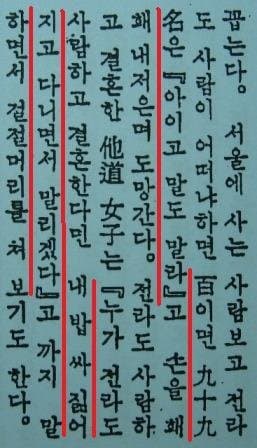 꼽는다。 서울에 사는 사람보고 전라
도 사람이 어떠냐하면 百이면 九十九
名은 『아이고 말도 말라』고 손을 홰
홰 내저으며 도망간다。전라도 사람하
고 결혼한 他道 女子는 『누가 전라도
사람하고 결혼한다면 내 밥 싸 짊어
지고 다니면서 말리겠다』고 까지 말
하면서 걸절머리를 쳐 보기도 한다。